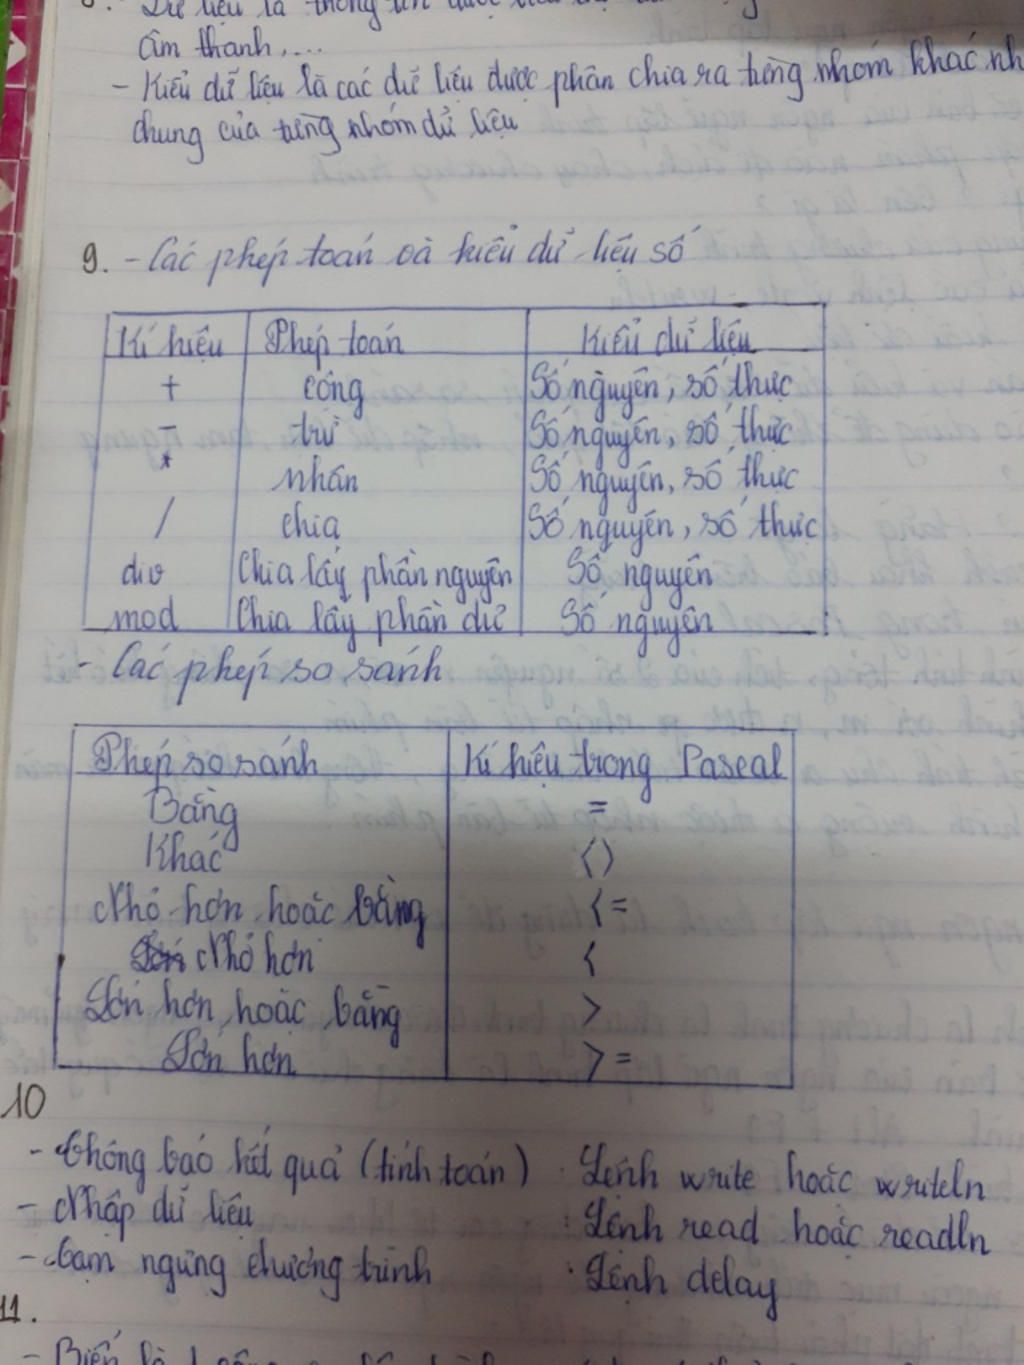 8. Dữ liệu là thông tin được
âm thanh,....
- Kiểu dữ liệu là các dữ liệu được phân chia ra từng nhóm khác nh
chung của từng nhóm dữ liệu
9. - Các phép toán và kiểu dữ liệu số
Kí hiệu Phép toán Kiểu dữ liệu
+ cộng Số nguyên, số thực
- trừ Số nguyên, số thực
* nhân Số nguyên, số thực
/ chia Số nguyên, số thực
div Chia lấy phần nguyên Số nguyên
mod Chia lấy phần dư Số nguyên
- Các phép so sánh
Phép so sánh Kí hiệu trong Pascal
Bằng =
Khác <>
Nhỏ hơn hoặc bằng <=
Nhỏ hơn <
Lớn hơn hoặc bằng >
Lớn hơn >=
10
- Thông báo kết quả (tính toán) : Lệnh write hoặc writeln
- Nhập dữ liệu : Lệnh read hoặc readln
- Tạm ngừng chương trình : Lệnh delay
11.
- Biến là 1